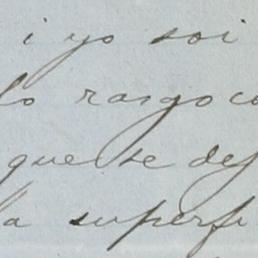 i yo soi
lo rasgo co
que se def
a superfi